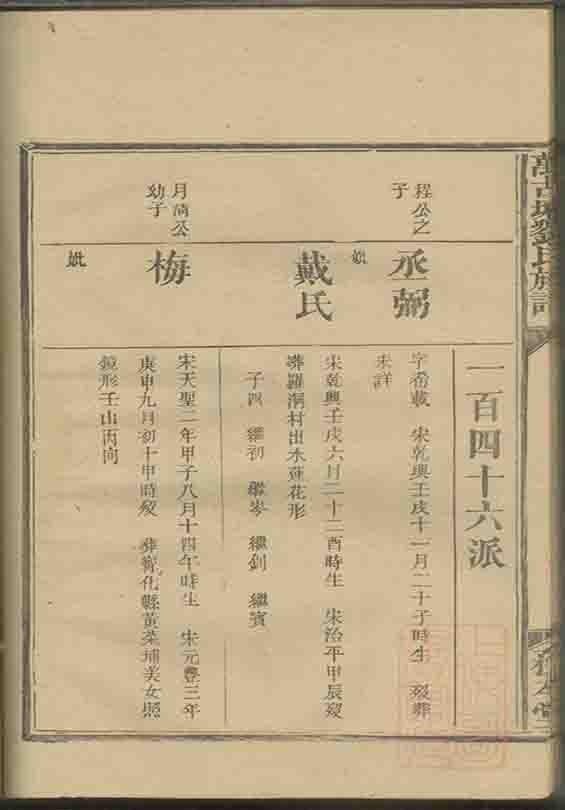 一百四十六派
程公之
子
丞弼
字希載 宋乾興壬戌十一月二十子時生 歿葬
未詳
妣
戴氏
宋乾興壬戌六月二十二酉時生 宋治平甲辰歿
葬羅洞村出水蓮花形
子四 繼初 繼岑 繼釗 繼賓
月滿公
幼子
梅
宋天聖二年甲子八月十四午時生 宋元豐三年
庚申九月初十申時歿 葬寧化縣黃菜埔美女照
鏡形壬山丙向
妣
劉氏族譜